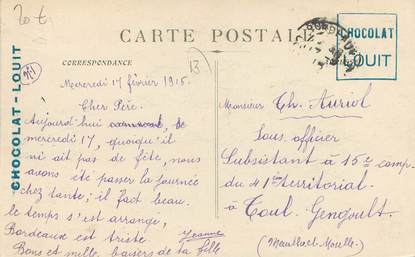 20 €
CARTE POSTALE
CHOCOLAT
LOUIT
CHOCOLAT-LOUIT
BORDEAUX
CORRESPONDANCE
13
Mercredi 17 février 1915.
Cher Père.
Aujourd'hui carnaval, de
mercredi 17, quoiqu'il
n'i ait pas de fête, nous
avons été passer la journée
chez tante; il fait beau.
le temps s'est arrangé,
Bordeaux est triste.
Jeanne
Bons et mille baisers de ta fille
Monsieur Ch. Auriol
Sous officier
Subsistant à 15e comp.
du 41ème territorial.
à Toul. Gengoult.
(Meurthe et Moselle.)